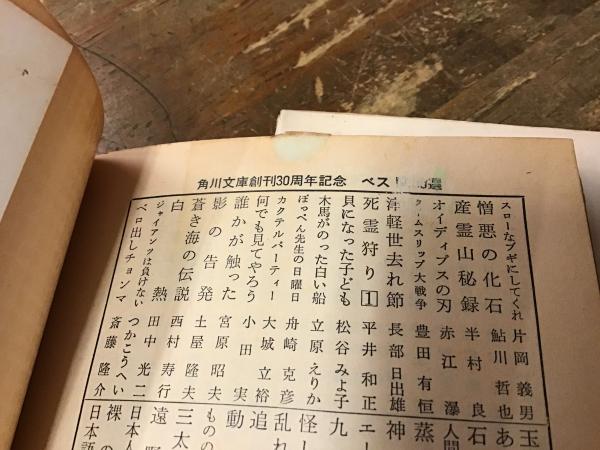 角川文庫創刊30周年記念 ベス 選
スローなブギにしてくれ 片岡義男
憎悪の化石 鮎川哲也
産霊山秘録 半村良
オイディプスの刃 赤江瀑
タイムスリップ大戦争 豊田有恒
津軽世去れ節 長部日出雄
死霊狩り1 平井和正
貝になった子ども 松谷みよ子
木馬がのった白い船 立原えりか
ぽっぺん先生の日曜日 舟崎克彦
カクテル・パーティー 大城立裕
何でも見てやろう 小田実
誰かが触った 宮原昭夫
影の告発 土屋隆夫
蒼き海の伝説 西村寿行
白熱 田中光二
ジャイアンツは負けない つかこうへい
ベロ出しチョンマ 斎藤隆介
玉
あ
石
人間
蒸
神
エー
九
怪し
乱れ
追
動
ものの
三太
遠野
日本人
裸の
日本語